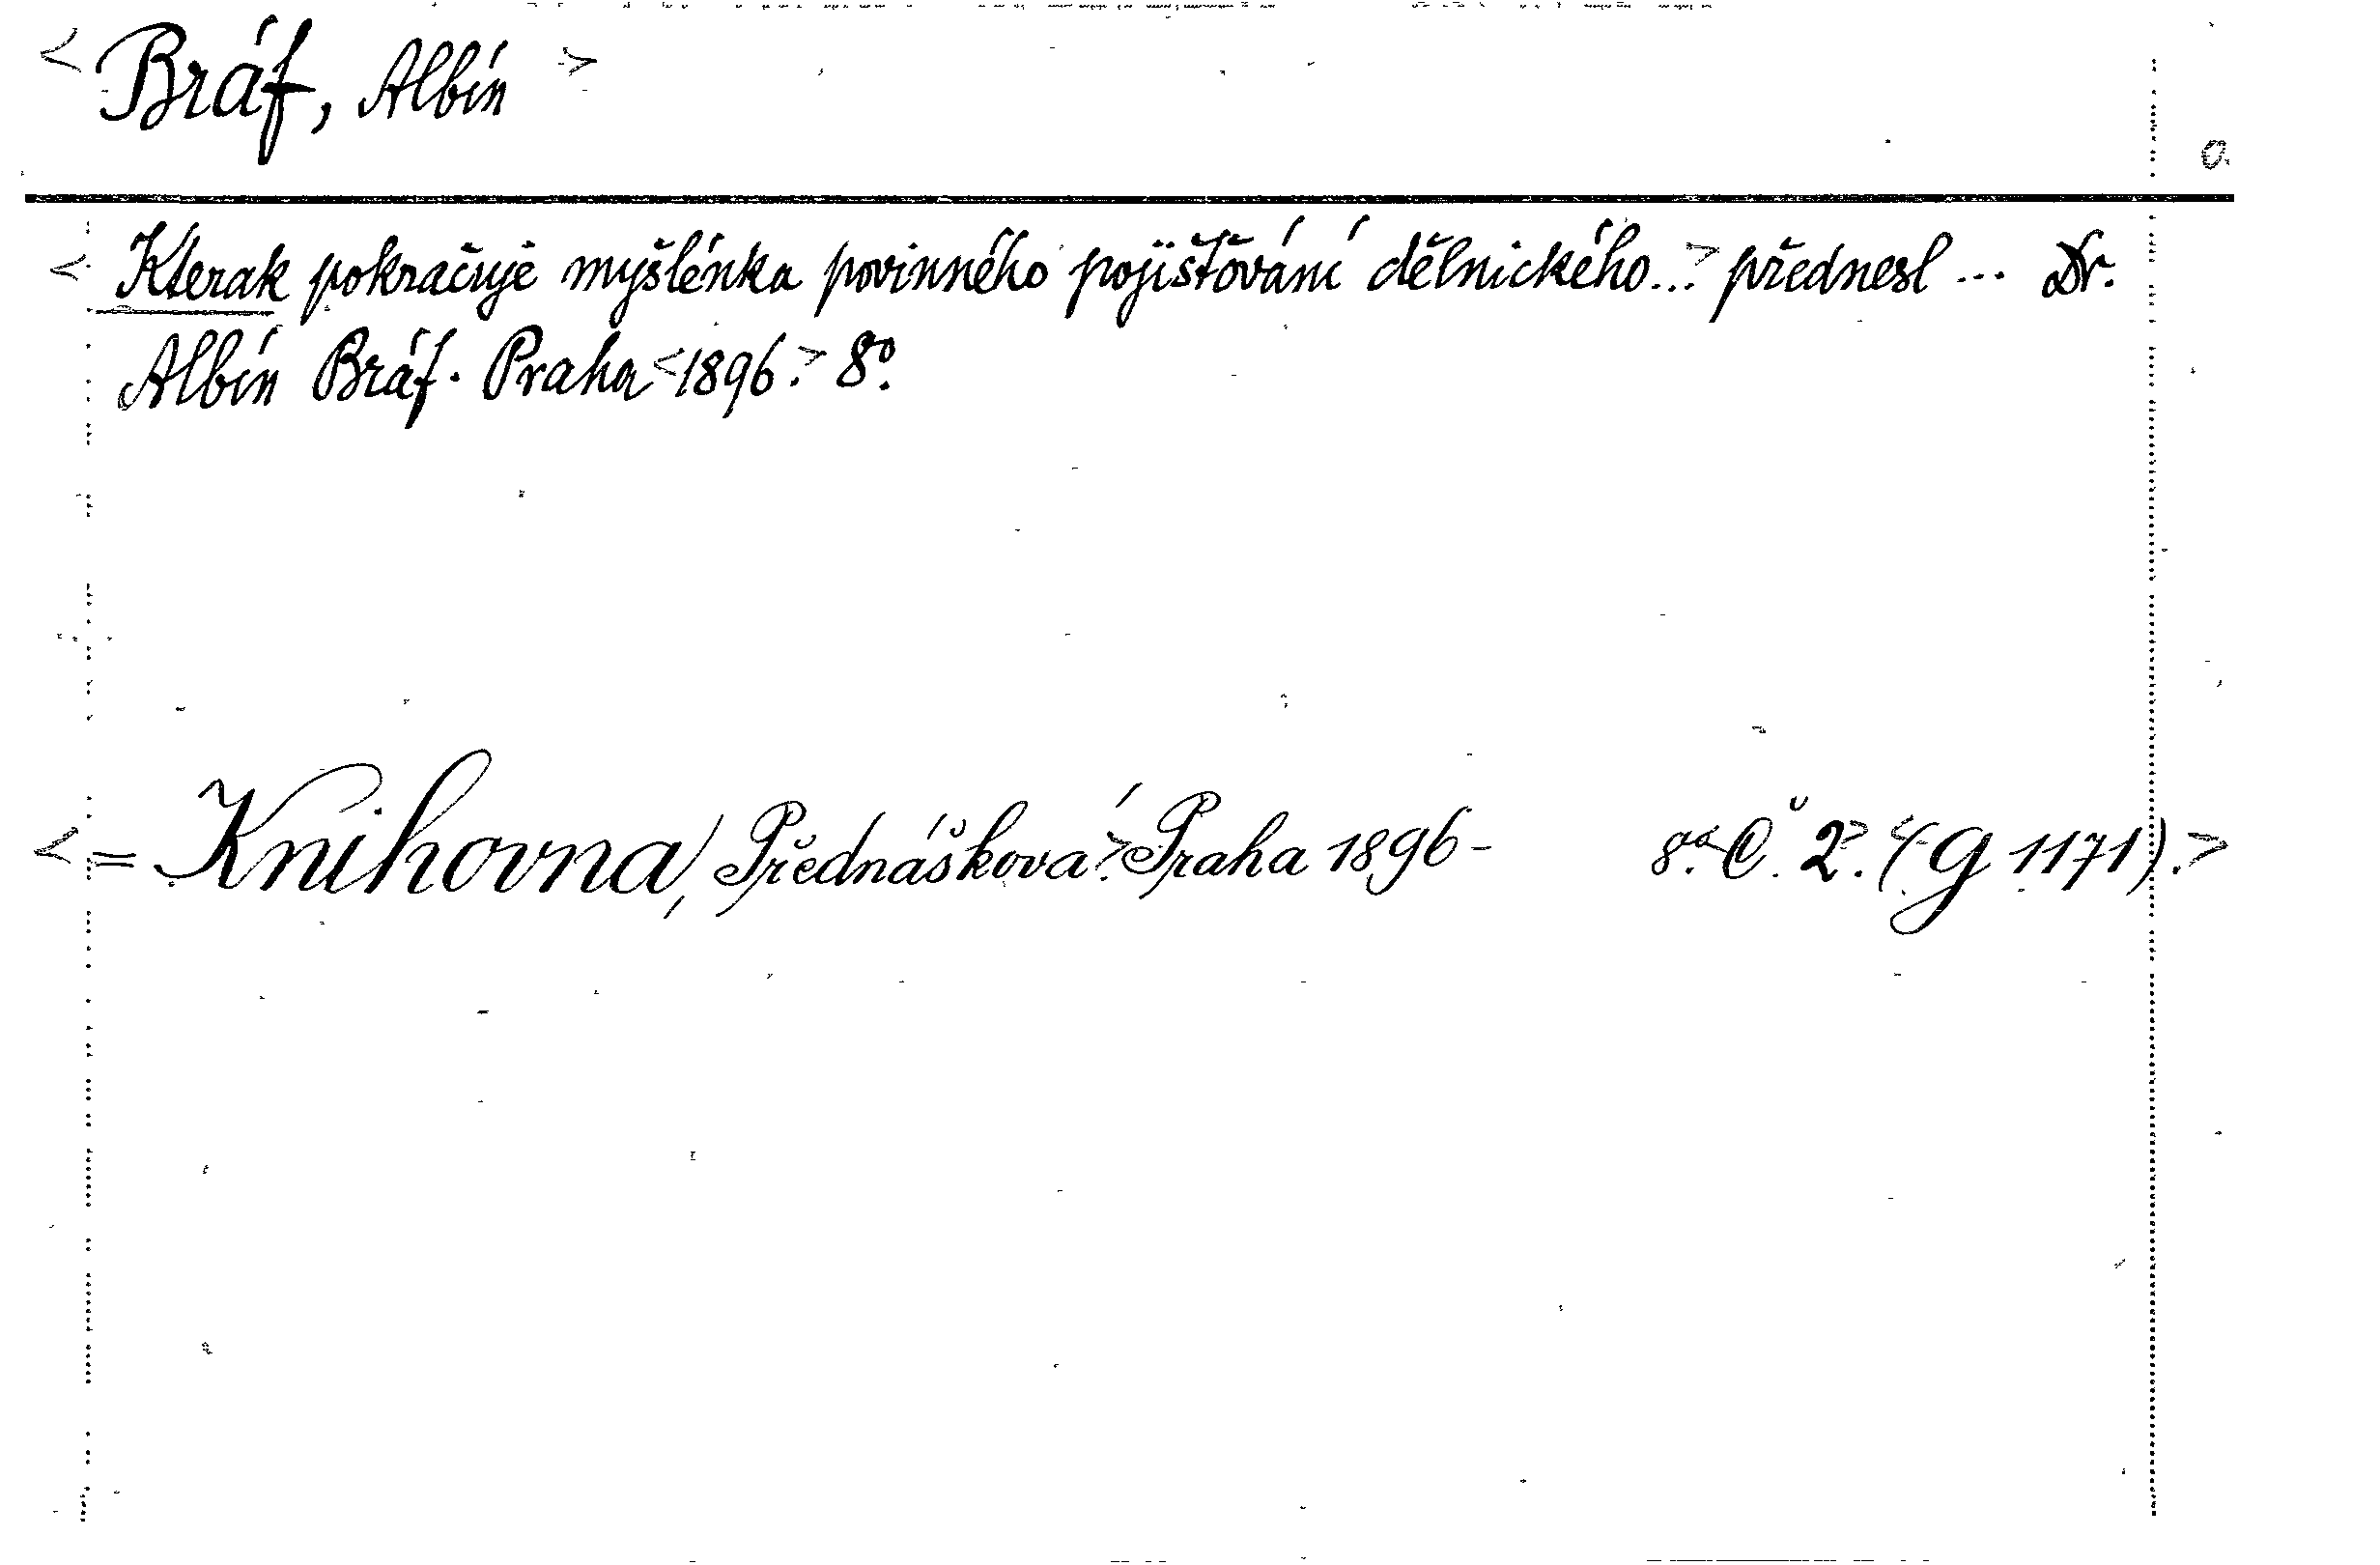 < Bráf, Albín >
o.
< Kterak pokračuje myšlénka povinného pojišťování dělnického...> přednesl ... Dr.
Albín Bráf. Praha <1896.> 8º.
< = Knihovna, Přednášková.> Praha 1896- 8º. < Č. 2.> < (G 1171).>